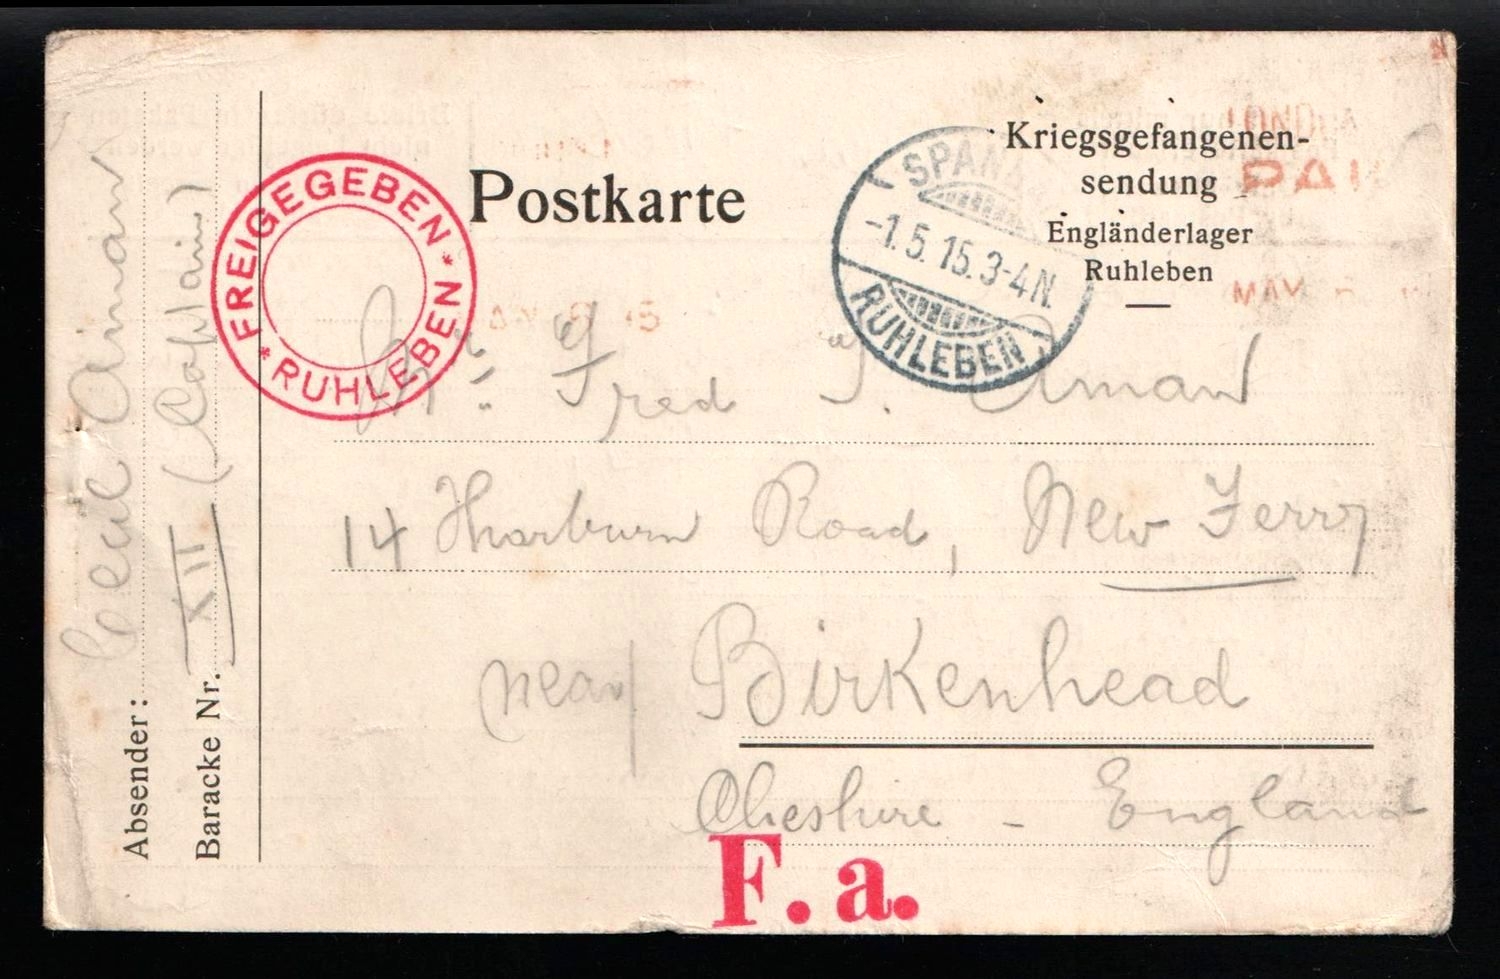 Kriegsgefangenen-
sendung
Engländerlager
Ruhleben
Postkarte
FREIGEGEBEN
* RUHLEBEN *
SPAN
-1.5.15.3-4N.
RUHLEBEN
LONDON
PAI
MAY
Mr. Fred J. Aman
14 Harburn Road, New Ferry
near Birkenhead
Cheshire - England
F. a.
Absender: Cecil Aiman
Baracke Nr. XII (Captain)